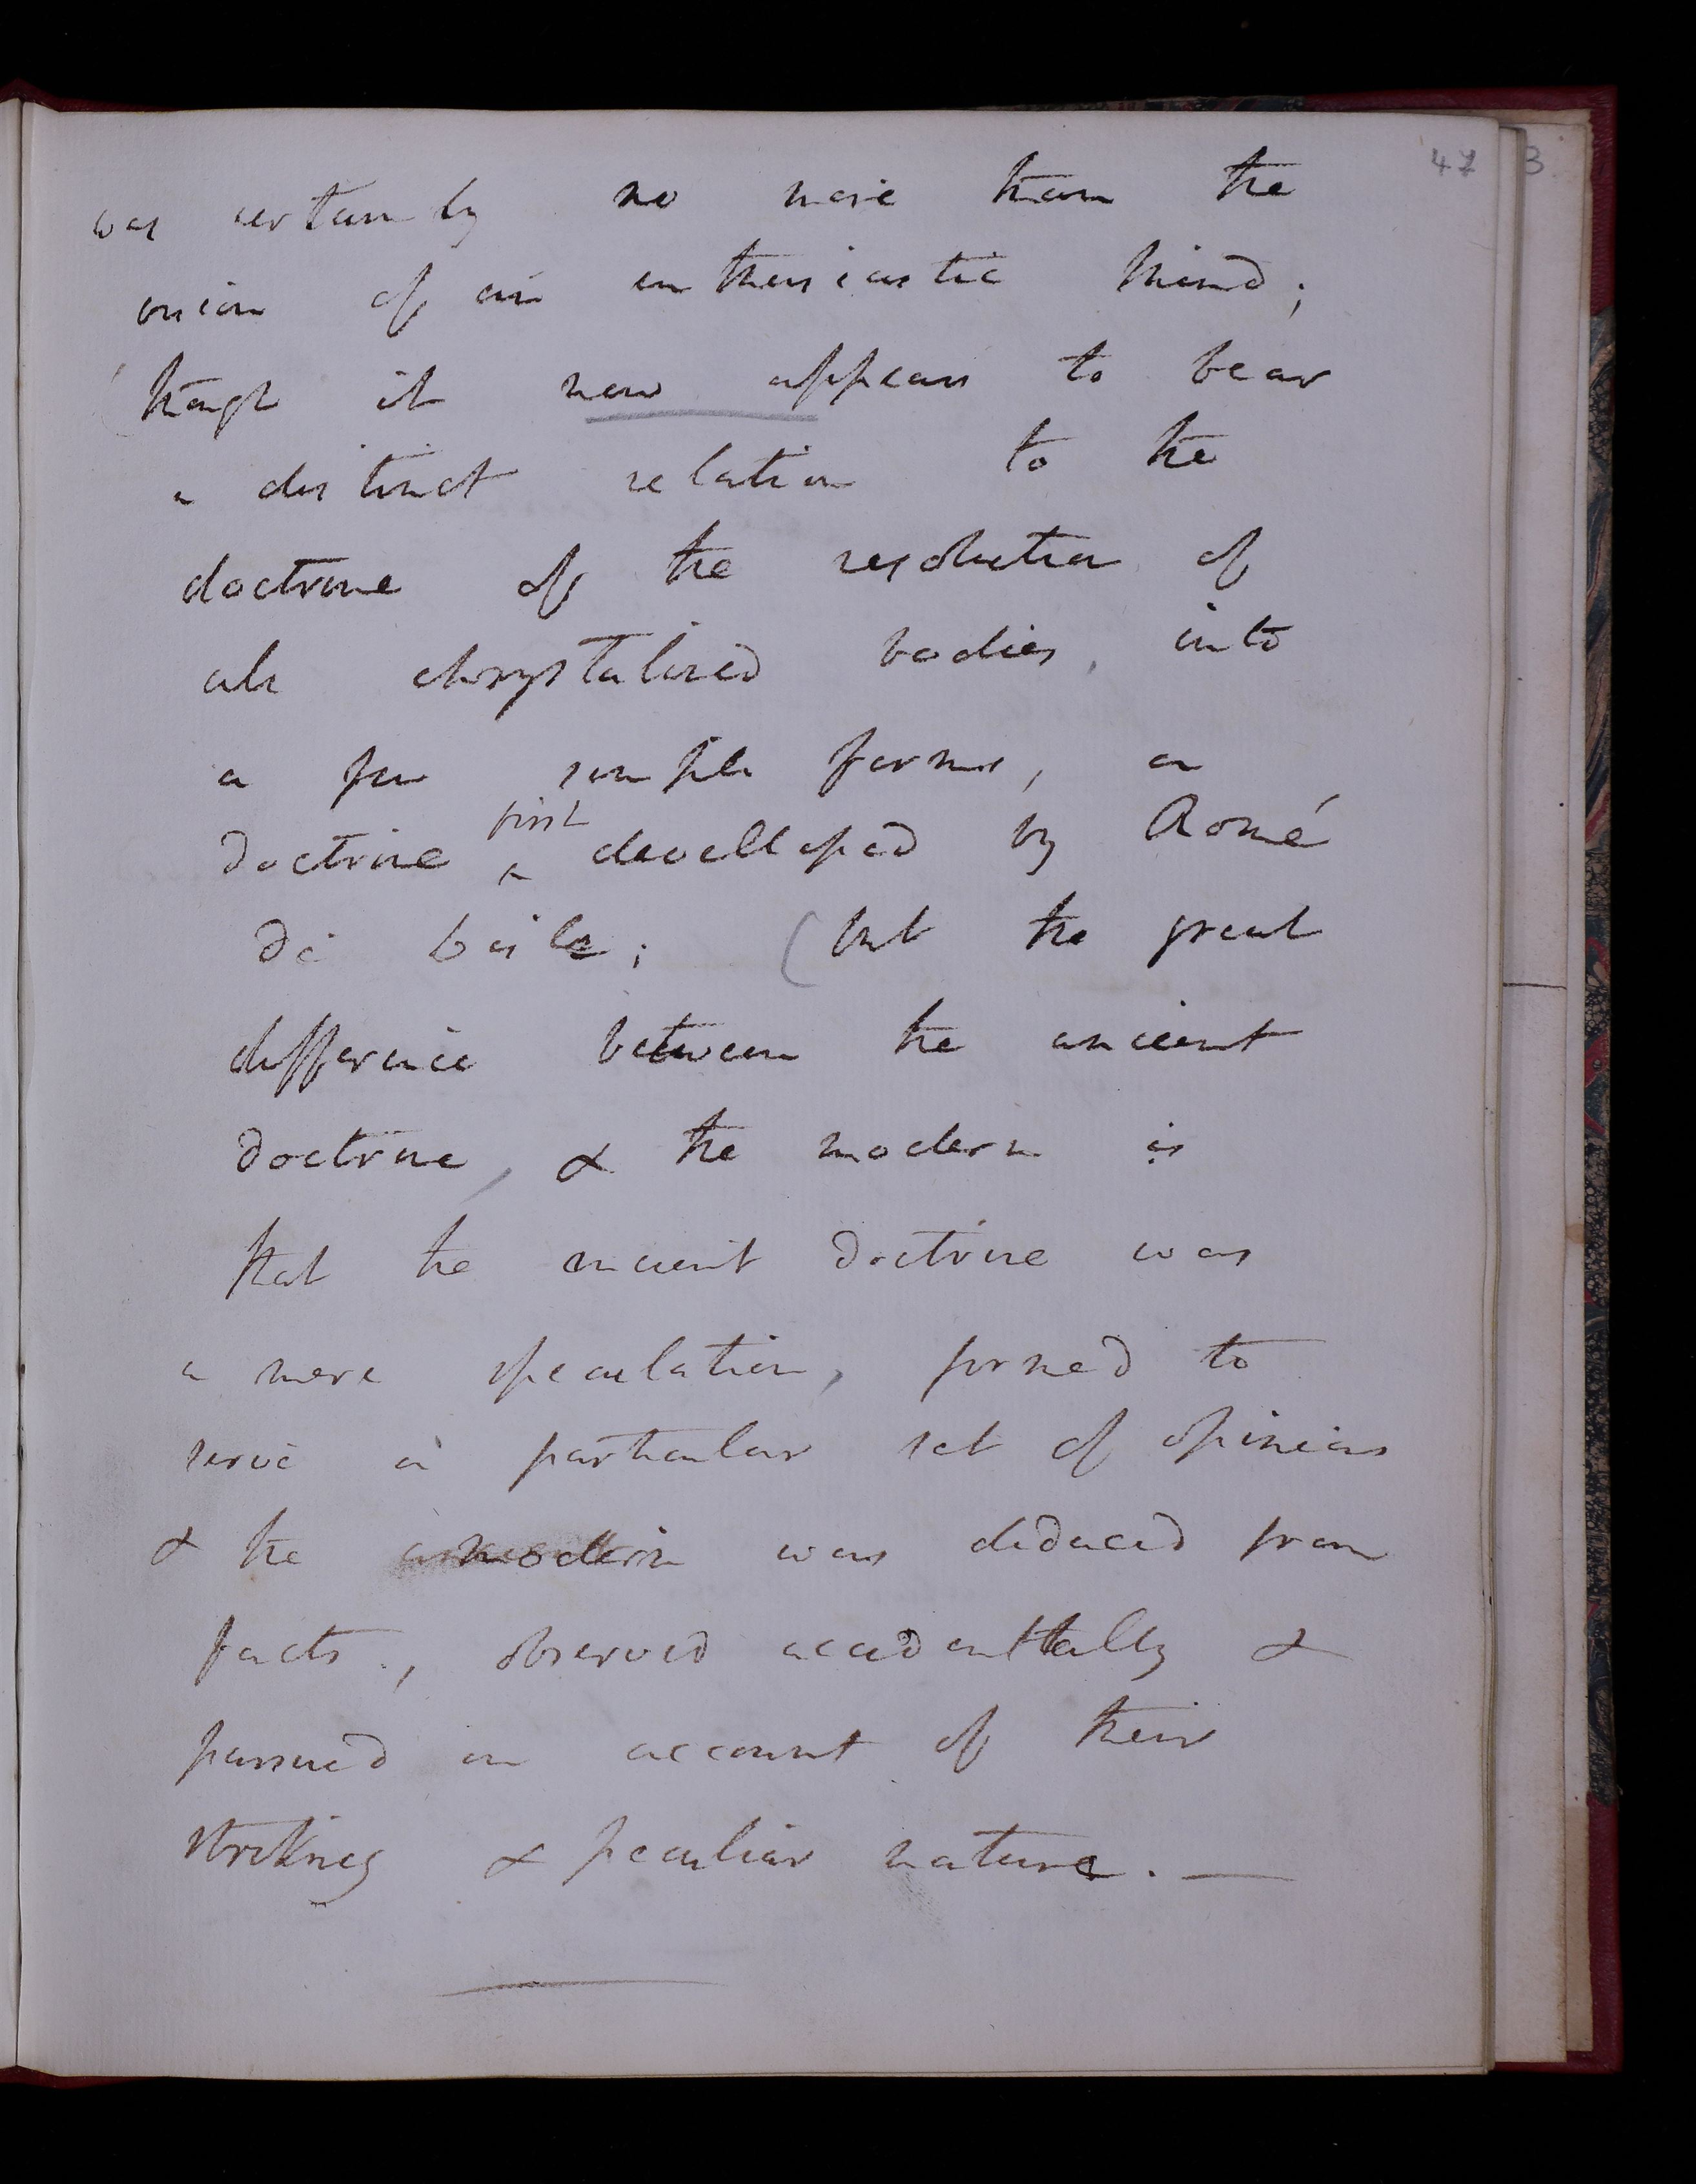 47 3
was certainly no more than the
vision of an enthusiastic mind;
though it now appears to bear
a distinct relation to the
doctrine of the resolution of
all chrystalized bodies, into
a few simple forms, a
first
doctrine ^ developped by Romé
de Lisle; (but the great
difference between the ancient
doctrine, & the modern is
that the ancient doctrine was
a mere speculation, formed to
serve a particular set of opinions
& the modern was deduced from
facts, observed accidenttally &
pursued on account of their
striking & peculiar nature. —